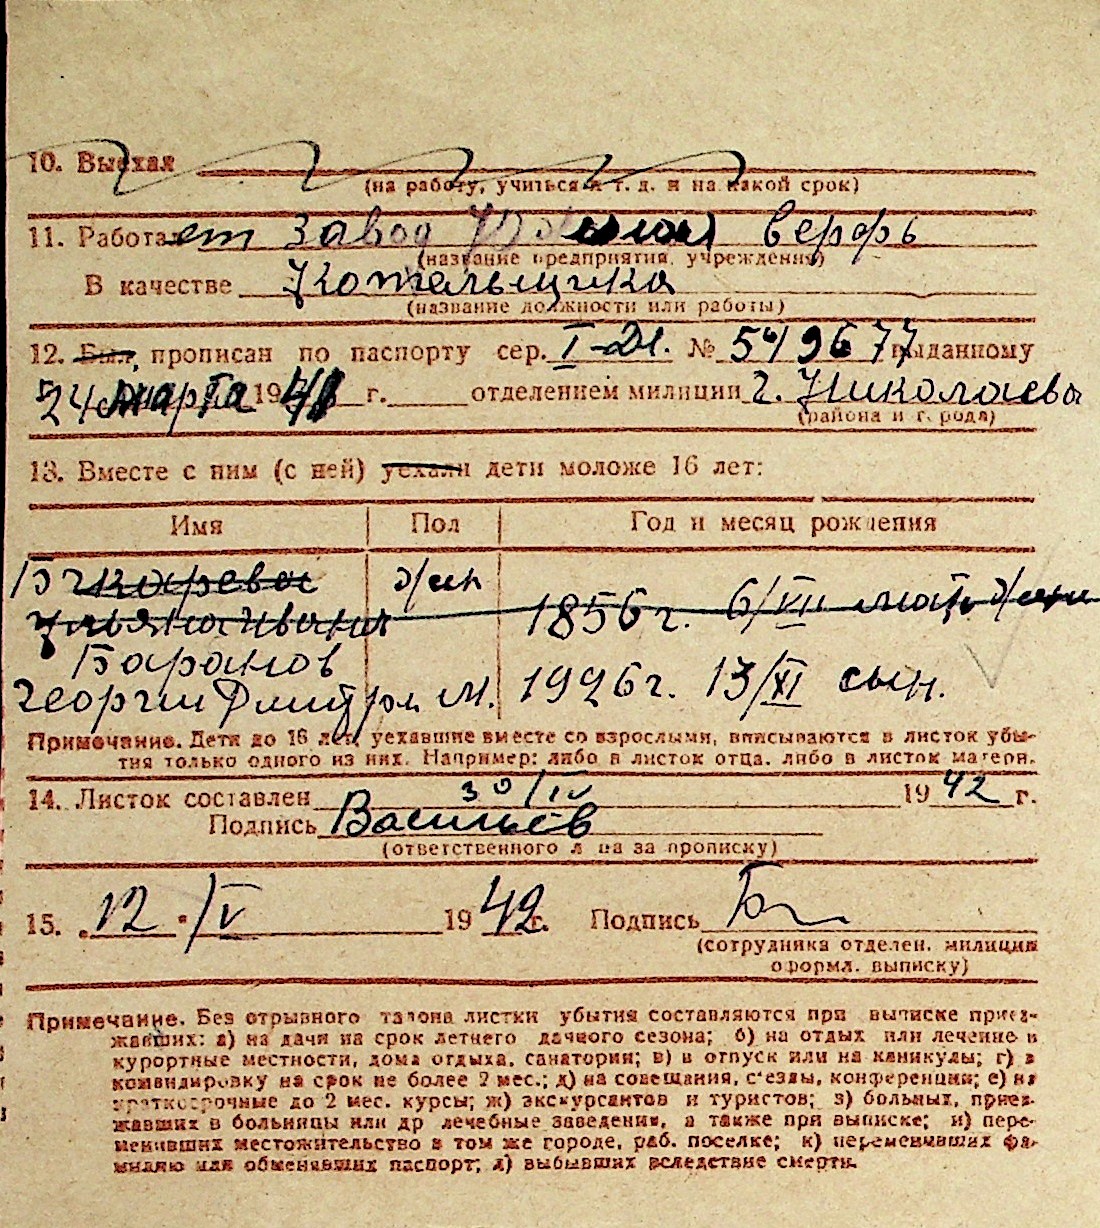 10. Выехал
(на работу, учиться и т. д. и на какой срок)
11. Работает завод верфь
(название предприятия, учреждения)
В качестве Котельщика
(название должности или работы)
12. Был, прописан по паспорту сер. I-ДЛ. № 549677 выданному
24 марта 1941 г. отделением милиции г. Николаева
(района и города)
13. Вместе с ним (с ней) уехали дети моложе 16 лет:
Имя Пол Год и месяц рождения
жен
1856 г. 6/VII мать
Баранов
Георгий Дмитр 1926 г. 13/XI сын.
Примечание. Дети до 16 лет, уехавшие вместе со взрослыми, вписываются в листок убы-
тия только одного из них. Например: либо в листок отца, либо в листок матери.
14. Листок составлен 30/IV 1942 г.
Подпись Васильев
(ответственного лица за прописку)
15. „12"/V 1942 г. Подпись
(сотрудника отделен. милиции
оформл. выписку)
Примечание. Без отрывного талона листки убытия составляются при выписке приез-
жавших: а) на дачи на срок летнего дачного сезона; б) на отдых или лечение в
курортные местности, дома отдыха, санатории; в) в отпуск или на каникулы; г) в
командировку на срок не более 2 мес.; д) на совещания, с'езды, конференции; е) на
краткосрочные до 2 мес. курсы; ж) экскурсантов и туристов; з) больных, приез-
жавших в больницы или др лечебные заведения, а также при выписке; и) пере-
менивших местожительство в том же городе, раб. поселке; к) переменивших фа-
милию или обменявших паспорт; л) выбывших вследствие смерти.